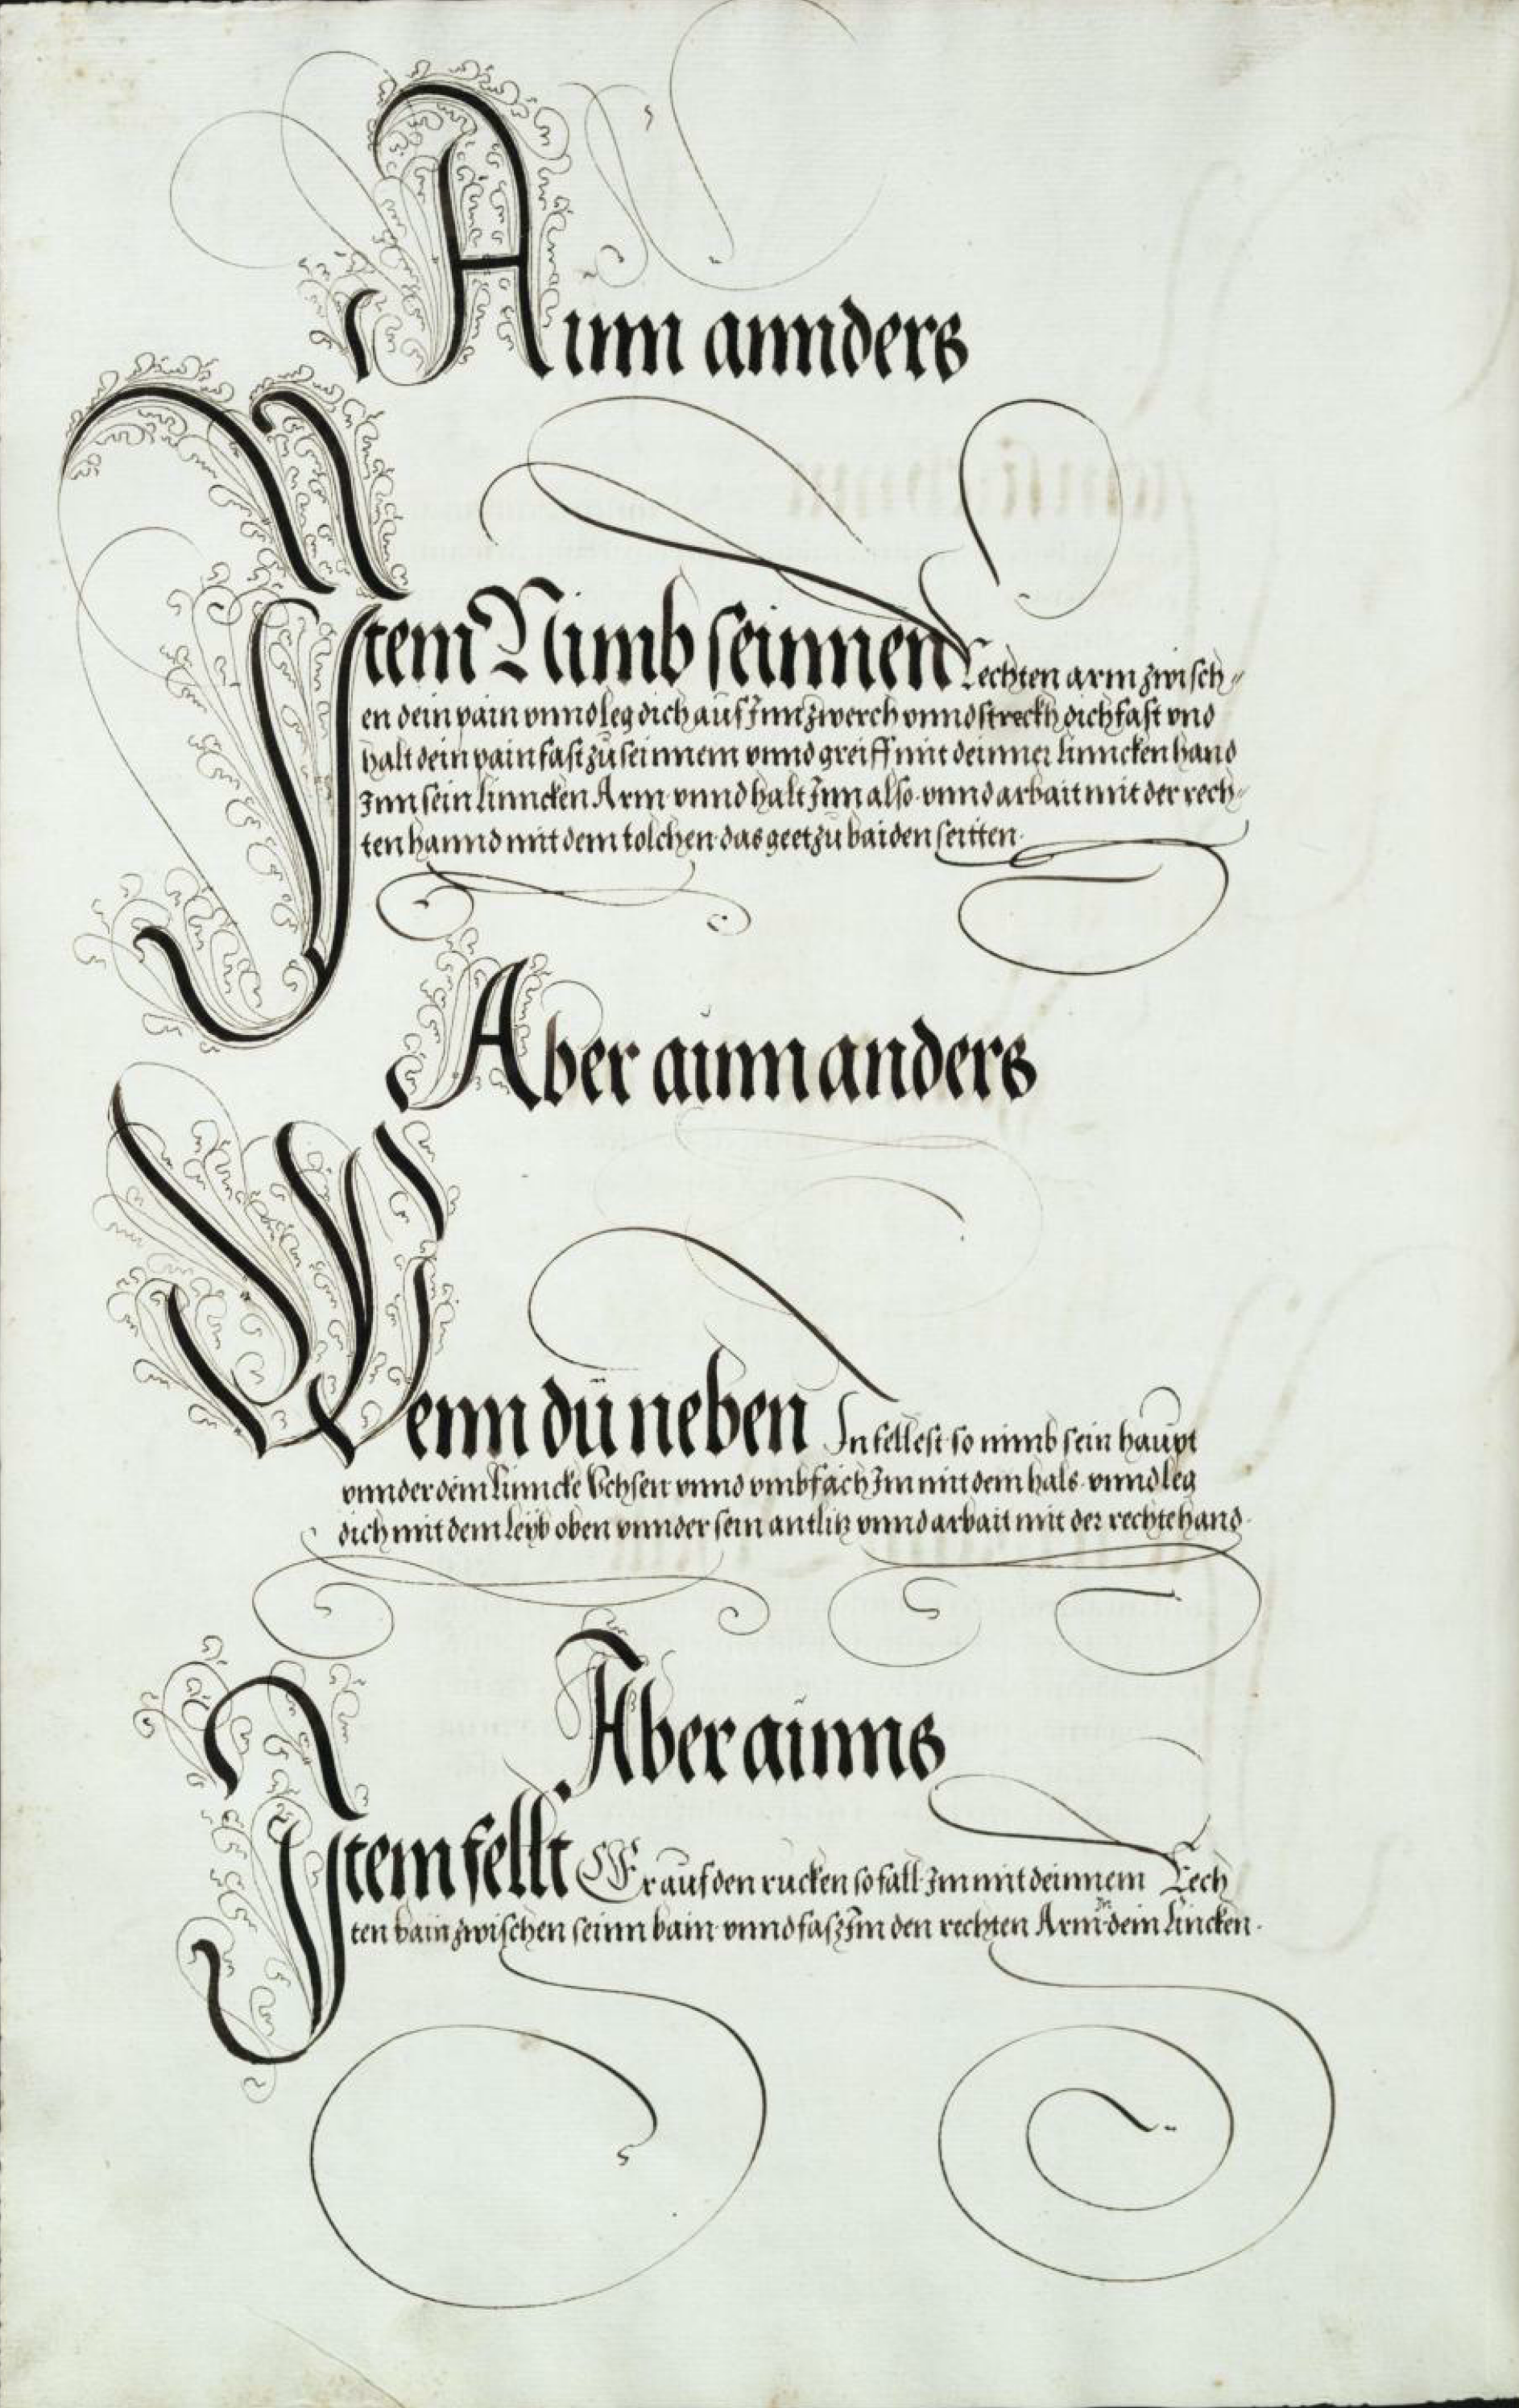 Ainn annders
Item Nimb seinnen Rechten arm zwisch=
en dein pain vnnd leg dich auf Inn zwerch vnnd streckh dich fast vnd
halt dein pain fast zu seinnem vnnd greiff mit deinner linncken hand
Inn sein linncken Arm vnnd halt Inn also vnnd arbait mit der rech=
ten hannd mit dem tolchen das geet zu baiden seitten
Aber ainn anders
Wenn dü neben In fellest so nimb sein haupt
vnnder dein linncke Vchsen vnnd vmbfäch Im mit dem hals vnnd leg
dich mit dem leyb oben vnnder sein antlitz vnnd arbait mit der rechte hand
Aber ainns
Item fellt Er auf den rucken so fall Im mit deinnem Rech
ten bain zwischen seinn bain vnnd fasz Im den rechten Arm In dein lincken